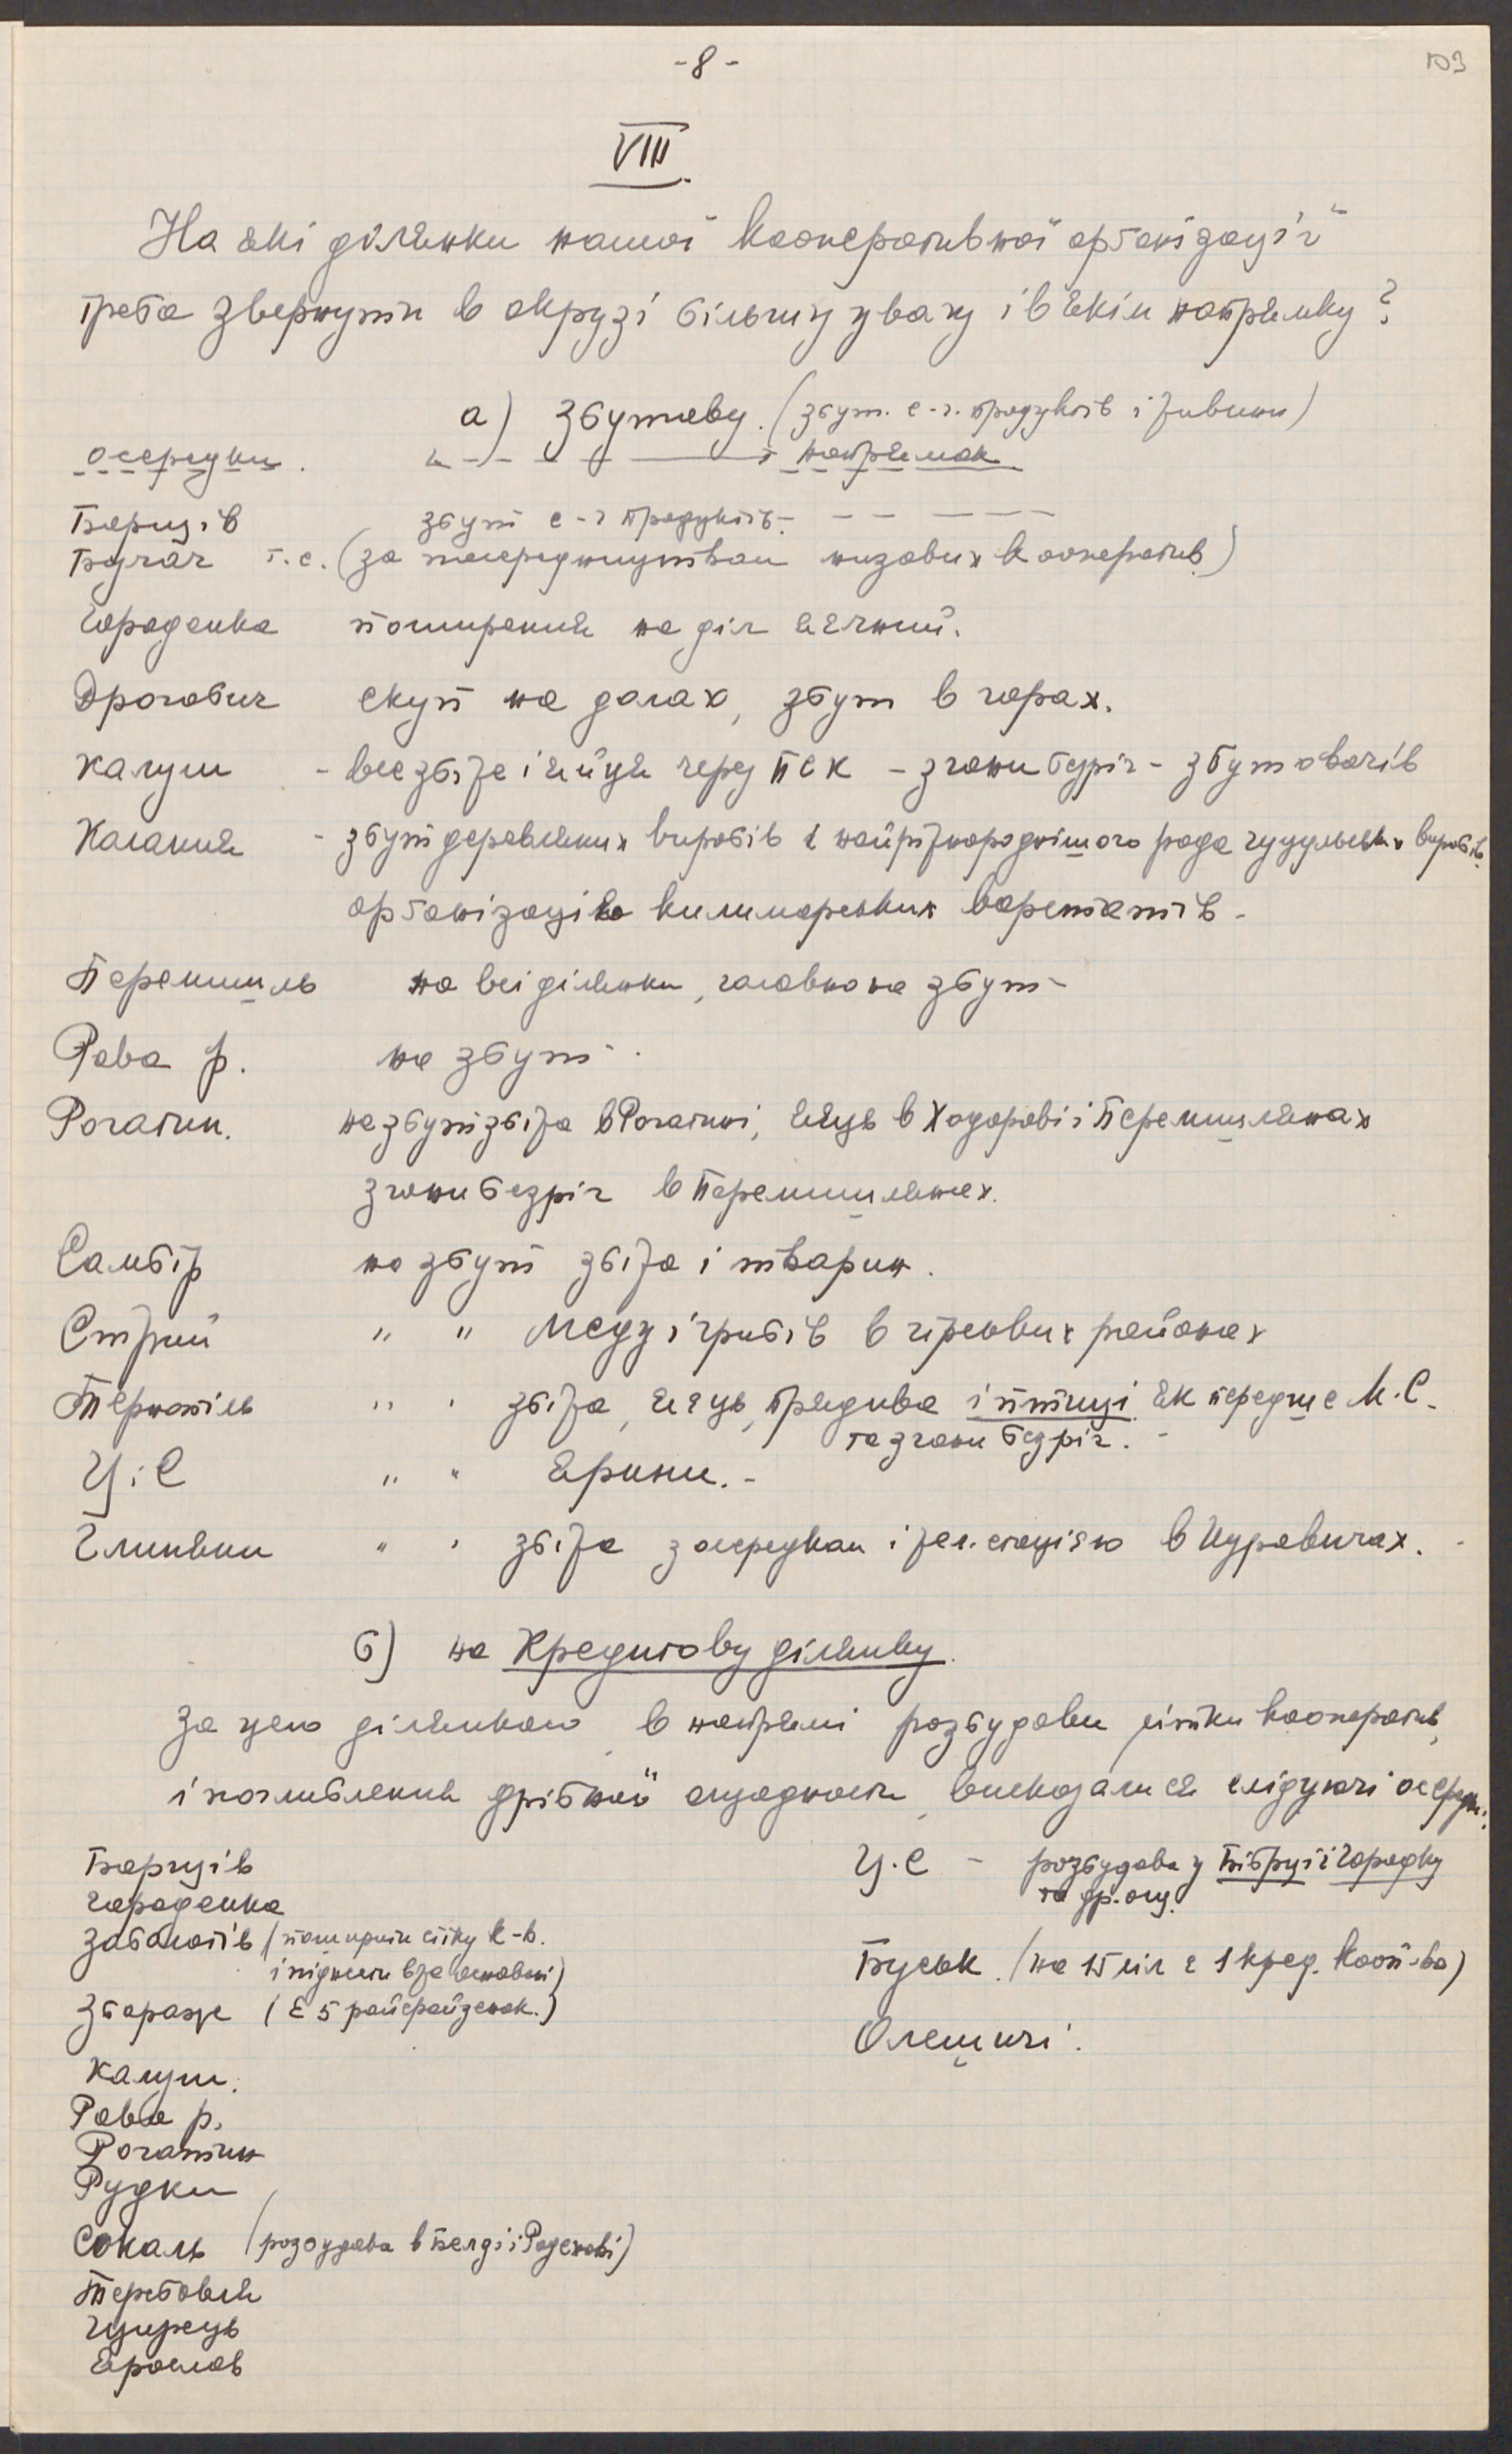 - 8 -
103
VIII.
На які ділянки нашої кооперативної орґанізації
треба звернути в окрузі більшу увагу і в якім напрямку?
а) Збутову. (збут. с-г. продуктів і живини)
осередки. напрямок
Борщів збут с-г продуктів.
Бучач т.с. (за посередництвом низових кооператив)
Городенка поширення на діл яєчний.
Дрогобич скуп на долах, збут в горах.
Калуш - все збіже і яйця через ПСК - згони безріг - збутовачів
Коломия - збут деревляних виробів і найріжнороднішого рода гуцульських виробів
орґанізацію килимарських варстатів -
Перемишль на всі ділянки, головно на збут -
Рава р. на збут.
Рогатин. на збут збіжа в Рогатині, яєць в Ходорові і Перемишлянах
згони безріг в Перемишлянах.
Самбір на збут збіжа і тварин.
Стрий " " меду і грибів в гірських районах
Тернопіль " " збіжа, яєць, прядива і птиці як передше М.С.
та згони безріг. -
Ц.С " " ярини. -
Глиняни " " збіжа з осередком і зел. стацією в Куровичах. -
б) на Кредитову ділянку.
За цею ділянкою в напрямі розбудови сітки кооператив,
і поглиблення дрібної ощадности, висказалися слідуючі осередки:
Борщів
Городенка
Заболотів (поширити сітку к-в.
і піднести вже основані)
Збараж (є 5 райфайзенок.)
Калуш.
Рава р.
Рогатин
Рудки
Сокаль (розбудова в Белзі і Радехові)
Теребовля
Щирець
Ярослав
Ц.С - розбудова у Бібрці і Городку
та др. ощ.
Буськ. (на 15 сіл є 1 кред. кооп-ва)
Олешичі.